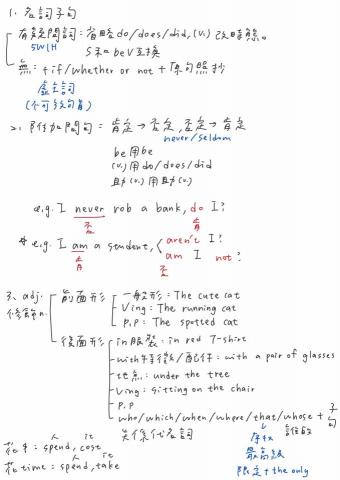 1. 名詞子句
有疑問詞:省略 do/does/did, (v.) 改時態。
5W1H
S和 beV互換
無:+if/whether or not + 原句照抄
虛主詞
(不可
2. 附加問句:肯定→否定,否定→肯定
never/seldom
be用be
(v.)用do/does/did
助(v.)用助(v.)
e.g. I never rob a bank, do I?
否
肯
* e.g. I am a student, aren't I?
肯
am I not?
否
3. adj.
修飾n.
前面形
一般形:The cute cat
Ving:The running cat
p.p:The spotted cat
後面形
in服裝:in red T-shirt
with特徵/配件:with a pair of glasses
地點:under the tree
Ving:sitting on the chair
p.p
who/which/when/where/that/whose + 子句
關係代名詞
序數
最高級
限定+the only
人 it
花$:spend, cost
人 it
花time:spend, take